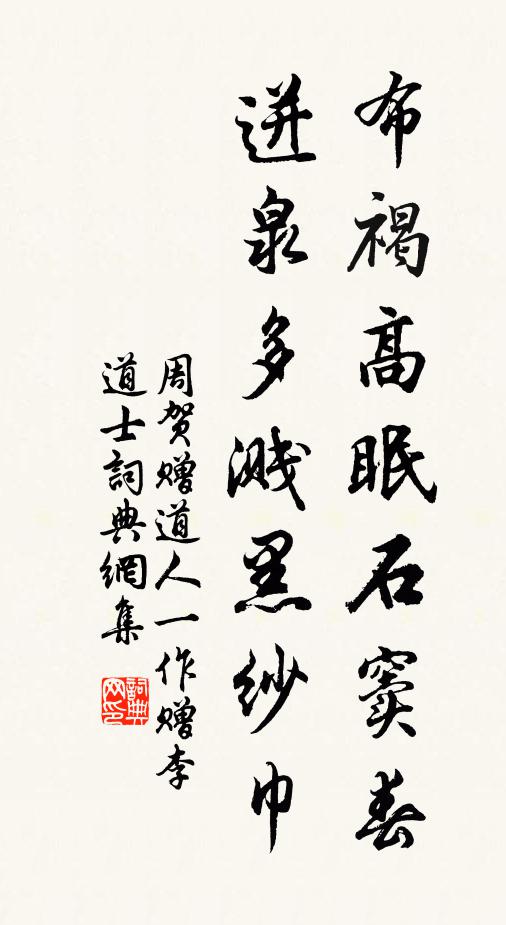 布褐高眠石竇春
迸泉多濺黑紗巾
周贺赠道人一作赠李
道士詞典網集
詞典网印